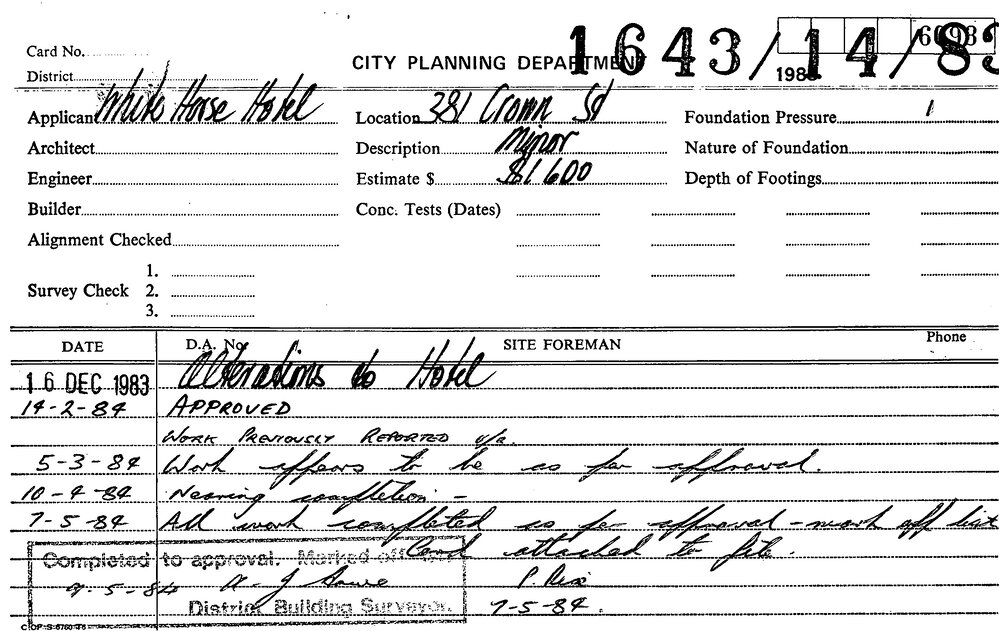 1643/14/83
6093
Card No.
CITY PLANNING DEPARTMENT
198
District
Applicant White Horse Hotel Location 381 Crown St Foundation Pressure
Architect Description Minor Nature of Foundation
Engineer Estimate $ $1,600 Depth of Footings
Builder Conc. Tests (Dates)
Alignment Checked
1.
Survey Check 2.
3.
DATE D.A. No. SITE FOREMAN Phone
16 DEC 1983 Alterations to Hotel
14-2-84 APPROVED
WORK PREVIOUSLY REPORTED
5-3-84 Work appears to be as per approval.
10-4-84 Nearing completion -
7-5-84 All work completed as per approval - mark off list
Card attached to file.
Completed to approval. Marked off
9-5-84
P. Rix
District Building Surveyor.
7-5-84.